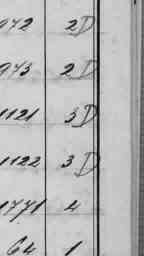 972 2D
973 2D
1121 3D
1122 3D
1771 4
64 1